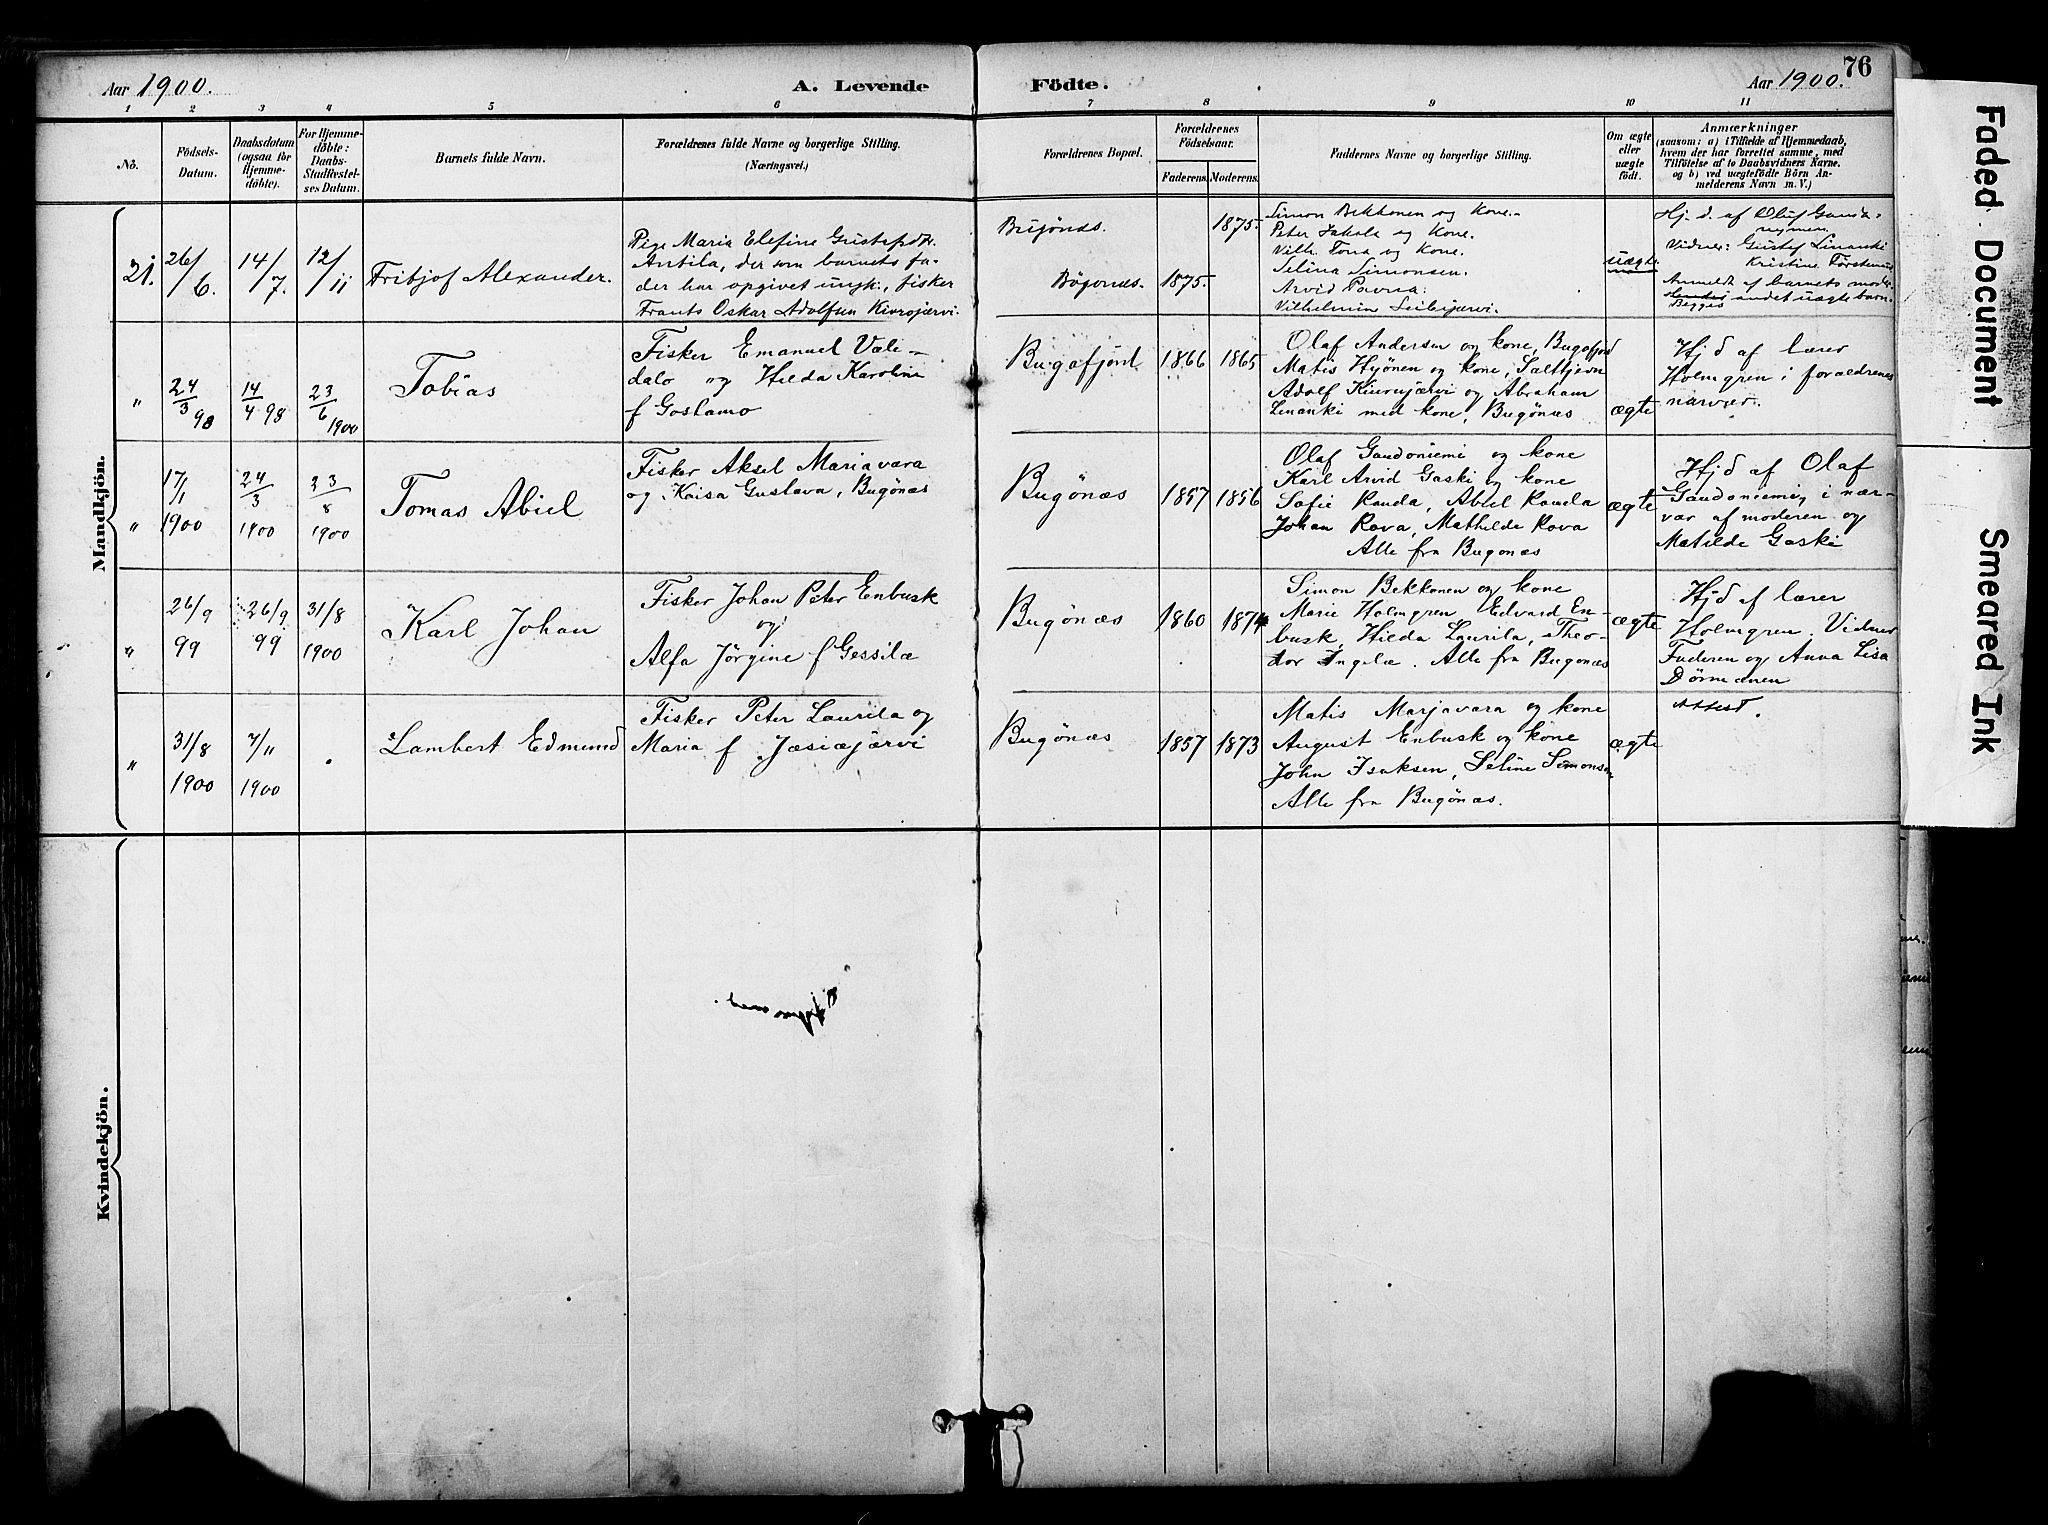 76
Aar 1900.
A. Levende Födte.
Aar 1900.
1 2 3 4 5 6 7 8 9 10 11
No.
Födsels-Datum.
Daabsdatum (ogsaa for Hjemme-döbte).
For Hjemme-döbte: Daabs-Stadfæstel-ses Datum.
Barnets fulde Navn.
Forældrenes fulde Navne og borgerlige Stilling.
(Næringsvei.)
Forældrenes Bopæl.
Forældrenes Födselsaar.
Faderens. Moderens.
Faddernes Navne og borgerlige Stilling.
Om ægte eller uægte födt.
Anmærkninger
(saasom: a) i Tilfælde af Hjemmedaab,
hvem der har forrettet samme, med
Tilföielse af to Daabsvidners Navne.
og b) ved uægtefödte Börn An-
melderens Navn m. V.)
Mandkjön.
21.
26/6.
14/7.
12/11
Fritjof Alexander.
Pige Maria Elefine Gustafsdtr.
Antila, der som barnets fa-
der har opgivet ungk., fisker
Frants Oskar Adolfsen Kivrojærvi.
Bugönæs.
Bögönæs.
1875.
1875.
Simon Bekkonen og Kone.
Peter Jakola og Kone.
Vilh. Fona og Kone.
Selina Simonsen.
Arvid
Vilhelmin
uægte
Hj. d. af Oluf
Vidner: Gustaf Linanki
Kristine
Anmeldt af barnets moder.
Begges andet uægte barn.
"
24/3 98
14/4 98
23/6 1900
Tobias
Fisker Emanuel Væli-
dalo og Hilda Karoline
f Goslamo
Bugøfjord
1866
1865
Olaf Andersen og kone, Bugøfjord
Matis Hyönen og kone,
Adolf Kiurujærvi og Abraham
Linanki med kone, Bugönæs
ægte
Hjd af lærer
Holmgren i forældrenes
nærvær.
"
17/1 1900
24/3 1900
23/8 1900
Tomas Abiel
Fisker Aksel Mariavara
og Kaisa Gustava, Bugönæs
Bugönæs
1857
1856
Olaf Gaudoniemi og kone
Karl Arvid Gaski og kone
Sofie Randa, Abiel Randa
Johan Rova, Mathilde Rova
Alle fra Bugönæs
ægte
Hjd af Olaf
Gaudoniemi, i nær-
vær af moderen og
Matilde Gaski
"
26/9 99
26/9 99
31/8 1900
Karl Johan
Fisker Johan Peter Enbusk
og
Alfa Jörgine f Gessilæ
Bugönæs
1860
1874
Simon Bekkonen og kone
Marie Holmgren Edvard En-
busk, Hilda Laurila, Theo-
dor Ingelæ. Alle fra Bugönæs
ægte
Hjd af lærer
Holmgren. Vidner
Faderen og Anna Lisa
Dörmænen
"
31/8 1900
7/11 1900
Lambert Edmund
Fisker Peter Laurila og
Maria f Jæsiæjärvi
Bugönæs
1857
1873
Matis Marjavara og kone
August Enbusk og kone
John Isaksen, Seline Simonsen
Alle fra Bugönæs.
ægte
Attest.
Kvindekjön.
Faded Document
Smeared Ink